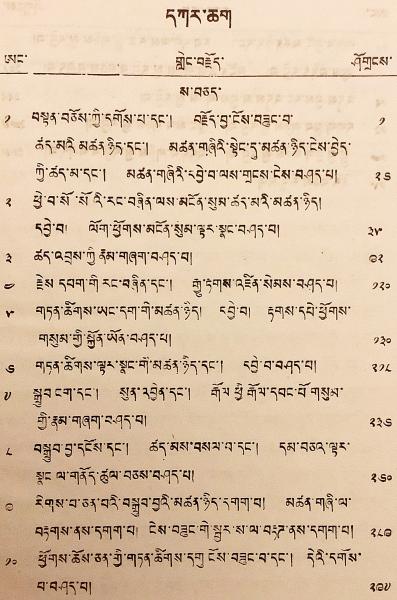 དཀར་ཆག
ཨང་ གླེང་བརྗོད་ ཤོགྲངས་
ས་བཅད་
༡ བསྟན་བཅོས་ཀྱི་དགོས་པ་དང་། བརྗོད་བྱ་ངོས་བཟུང་བ་ ༡
ཚད་མའི་མཚན་ཉིད་དང་། མཚན་གཞིའི་སྟེང་དུ་མཚན་ཉིད་ངེས་བྱེད་
ཀྱི་ཚད་མ་དང་། མཚན་གཞིའི་དབྱེ་བ་ལས་གྲངས་ངེས་བཤད་པ། ༡༦
༢ ཕྱེ་བ་སོ་སོའི་རང་བཞིན་ལས་མངོན་སུམ་ཚད་མའི་མཚན་ཉིད།
དབྱེ་བ། ལོག་ཕྱོགས་མངོན་སུམ་ལྟར་སྣང་བཤད་པ། ༢༥
༣ ཚད་འབྲས་ཀྱི་རྣམ་གཞག་བཤད་པ། ༧༡
༤ རྗེས་དཔག་གི་རང་བཞིན་དང་། རྒྱུ་རྟགས་འཛིན་སེམས་བཤད་པ། ༡༢༠
༥ གཏན་ཚིགས་ཡང་དག་གི་མཚན་ཉིད། དབྱེ་བ། རྟགས་དཔེ་ཕྱོགས་
གསུམ་གྱི་སྐྱོན་ཡོན་བཤད་པ། ༡༣༠
༦ གཏན་ཚིགས་ལྟར་སྣང་གི་མཚན་ཉིད་དང་། དབྱེ་བ་བཤད་པ། ༢༡༨
༧ སྒྲུབ་ངག་དང་། སུན་འབྱིན་དང་། རྒོལ་ཕྱི་རྒོལ་དཔང་པོ་གསུམ་
གྱི་རྣམ་གཞག་བཤད་པ། ༢༣༦
༨ བསྒྲུབ་བྱ་དངོས་དང་། ཚད་མས་བསལ་བ་དང་། དམ་བཅའ་ལྟར་
སྣང་ལ་གནོད་ཚུལ་བཅས་བཤད་པ། ༢༦༠
༩ རིགས་པ་ཅན་པའི་བསྒྲུབ་བྱའི་མཚན་ཉིད་དགག་པ། མཚན་གཞི་ལ་
བརྟགས་ནས་དགག་པ། ངེས་བཟུང་གི་སྦྱར་ས་ལ་བརྟག་ནས་དགག་པ། ༢༨༩
༡༠ ཕྱོགས་ཆོས་ཅན་གྱི་གཏན་ཚིགས་དགུ་ངོས་བཟུང་བ་དང་། དེའི་དགོས་
པ་བཤད་པ། ༢༩༧